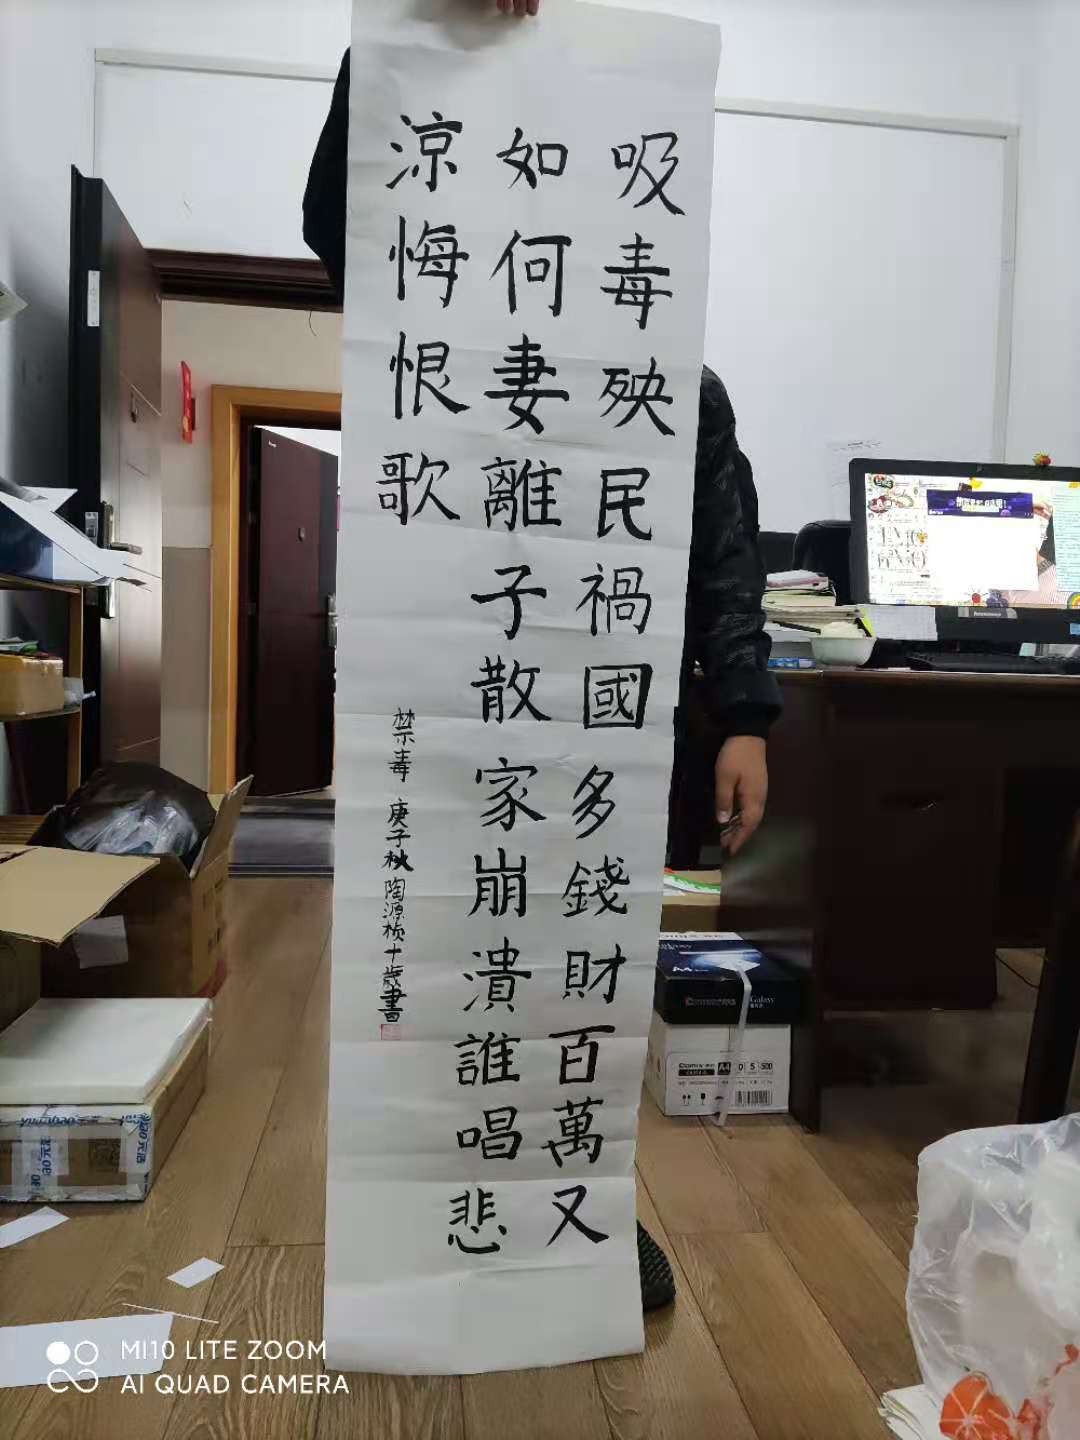 吸毒殃民禍國多錢財百萬又
如何妻離子散家崩潰誰唱悲
涼悔恨歌
禁毒 庚子秋 陶源桢十歲書
MI10 LITE ZOOM
AI QUAD CAMERA